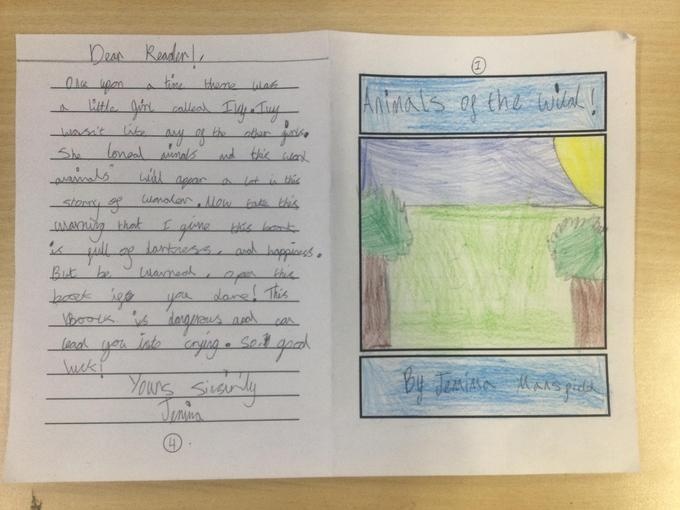 Dear Reader!,
Once upon a time there was
a little girl called Ivy. Ivy
wasn't like any of the other girls.
She loved and this word
animals will appear a lot in this
storry of wonder. Now take this
warning that I give this book
is full of darkness, and happiness.
But be warned, open this
book if you dare! This
Book is dangerous and can
lead you into crying. So good
luck!
Yours sinsirly
Jemima
4
1
Animals of the wild!
By Jemima Mansfield